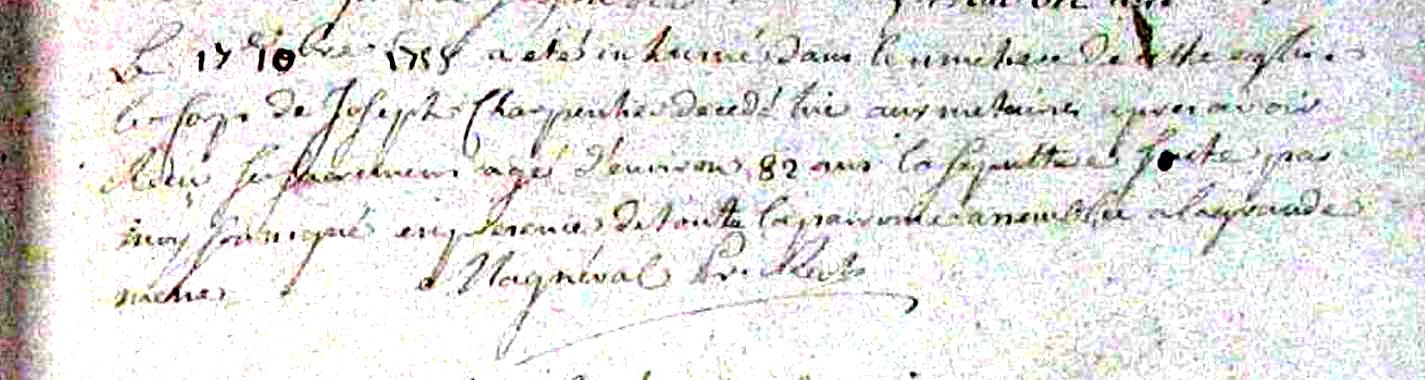 Le 17 10bre 1758 a eté inhumé dans le cimetiere de cette eglise
le corps de Joseph Charpentier decedé hier aux metairies apres avoir
Recu ses sacremens agé d'environ 82 ans la sepulture faite par
moy soussigné en presence de toute la paroisse assemblée a la grande
messe. Magneval